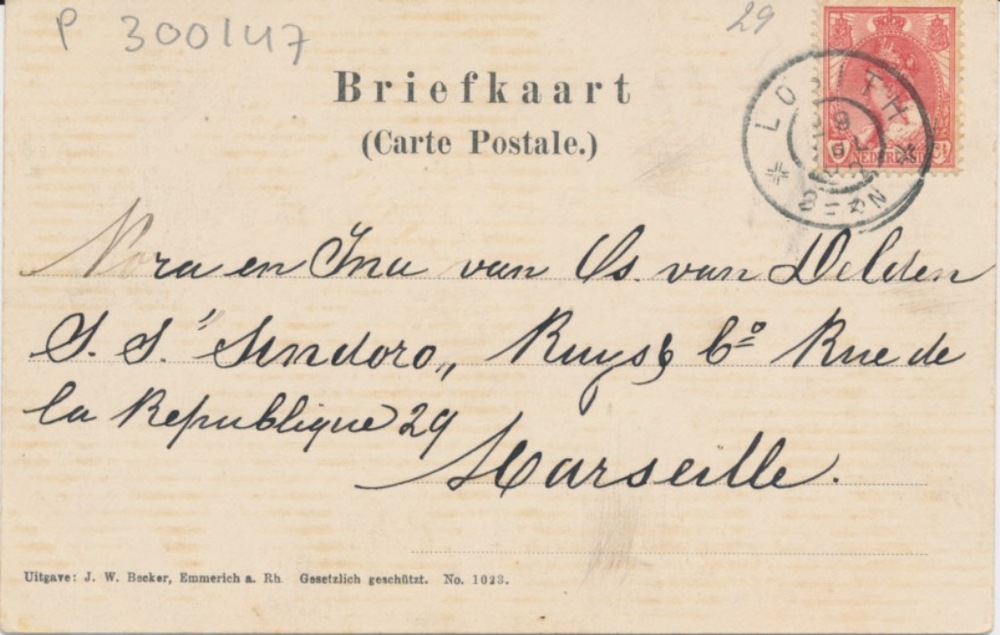 P 300147
29
Briefkaart
(Carte Postale.)
NEDERLAND
Nora en Ina van Os. van Delden
S. S. "Sindoro„ Ruys & Co Rue de
la Republique 29
Marseille.
Uitgave: J. W. Becker, Emmerich a. Rh. Gesetzlich geschützt. No. 1023.